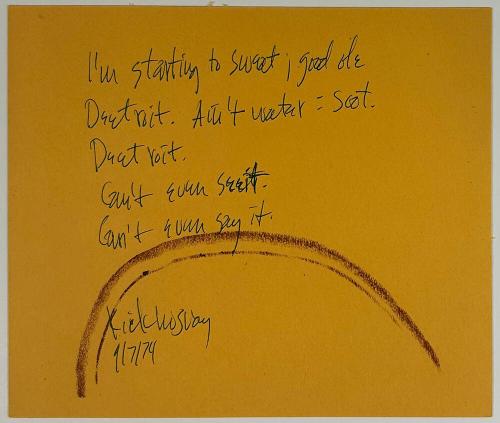 I'm starting to sweat; good ole
Deetroit. Ain't water = Soot.
Deetroit.
Can't even see it.
Can't even say it.
9/7/79